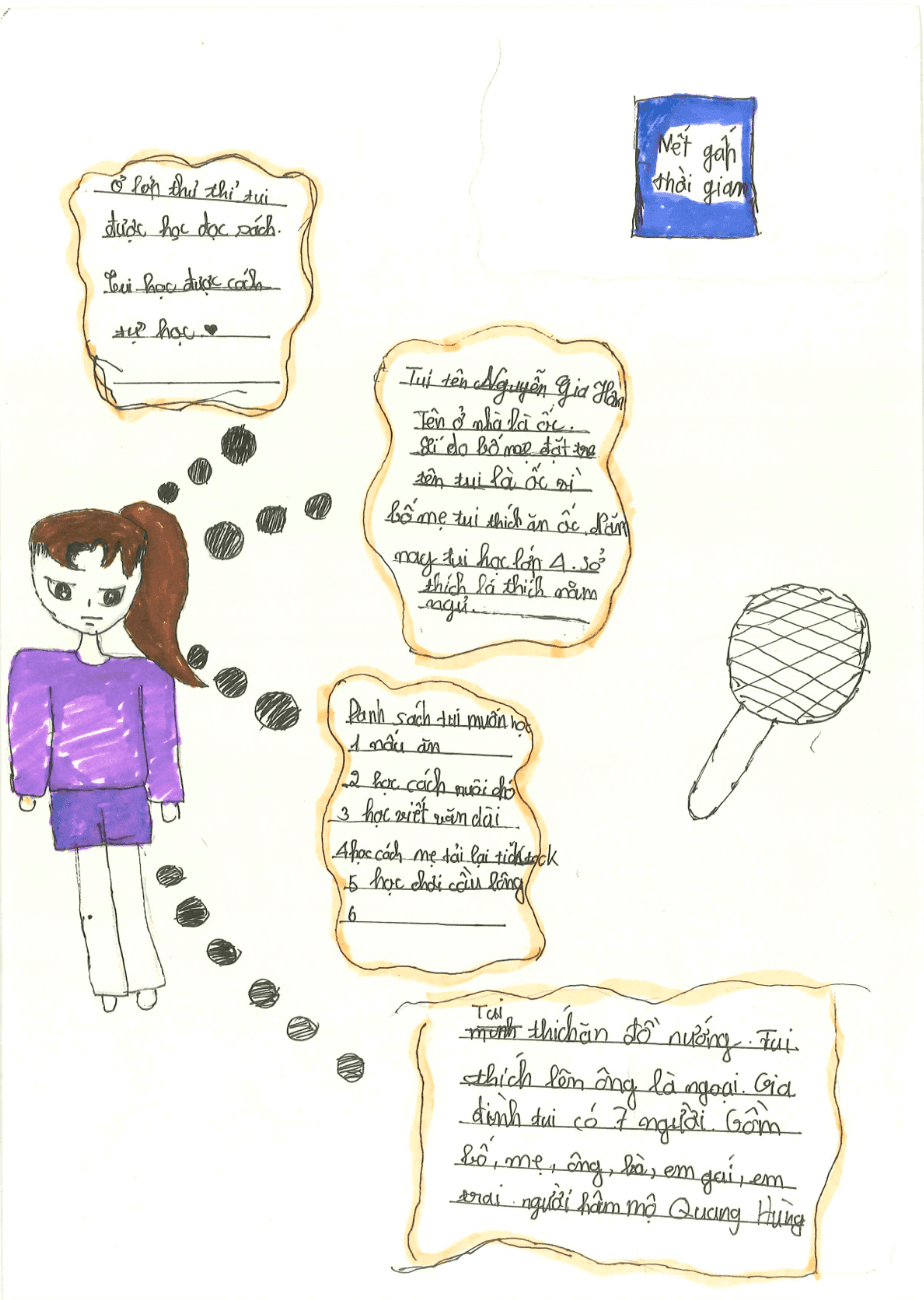 Nết gấn
thời gian
Ở lớp thư thỉ tui
được học đọc sách.
Tui học được cách
tự học ♥
Tui tên Nguyễn Gia Hân
Tên ở nhà là ốc.
Lí do bố mẹ đặt
tên tui là ốc vì
bố mẹ tui thích ăn ốc. Năm
nay tui học lớp 4. Sở
thích là thích nằm
ngủ.
Danh sách tui muốn học
1 nấu ăn
2 học cách nuôi chó
3 học viết văn dài
4 học cách mẹ tải lại ticktock
5 học chơi cầu lông
6
Tui
thích ăn đồ nướng. Tui
thích lên ông là ngoại. Gia
đình tui có 7 người. Gồm
bố, mẹ, ông, bà, em gái, em
trai. người hâm mộ Quang Hùng